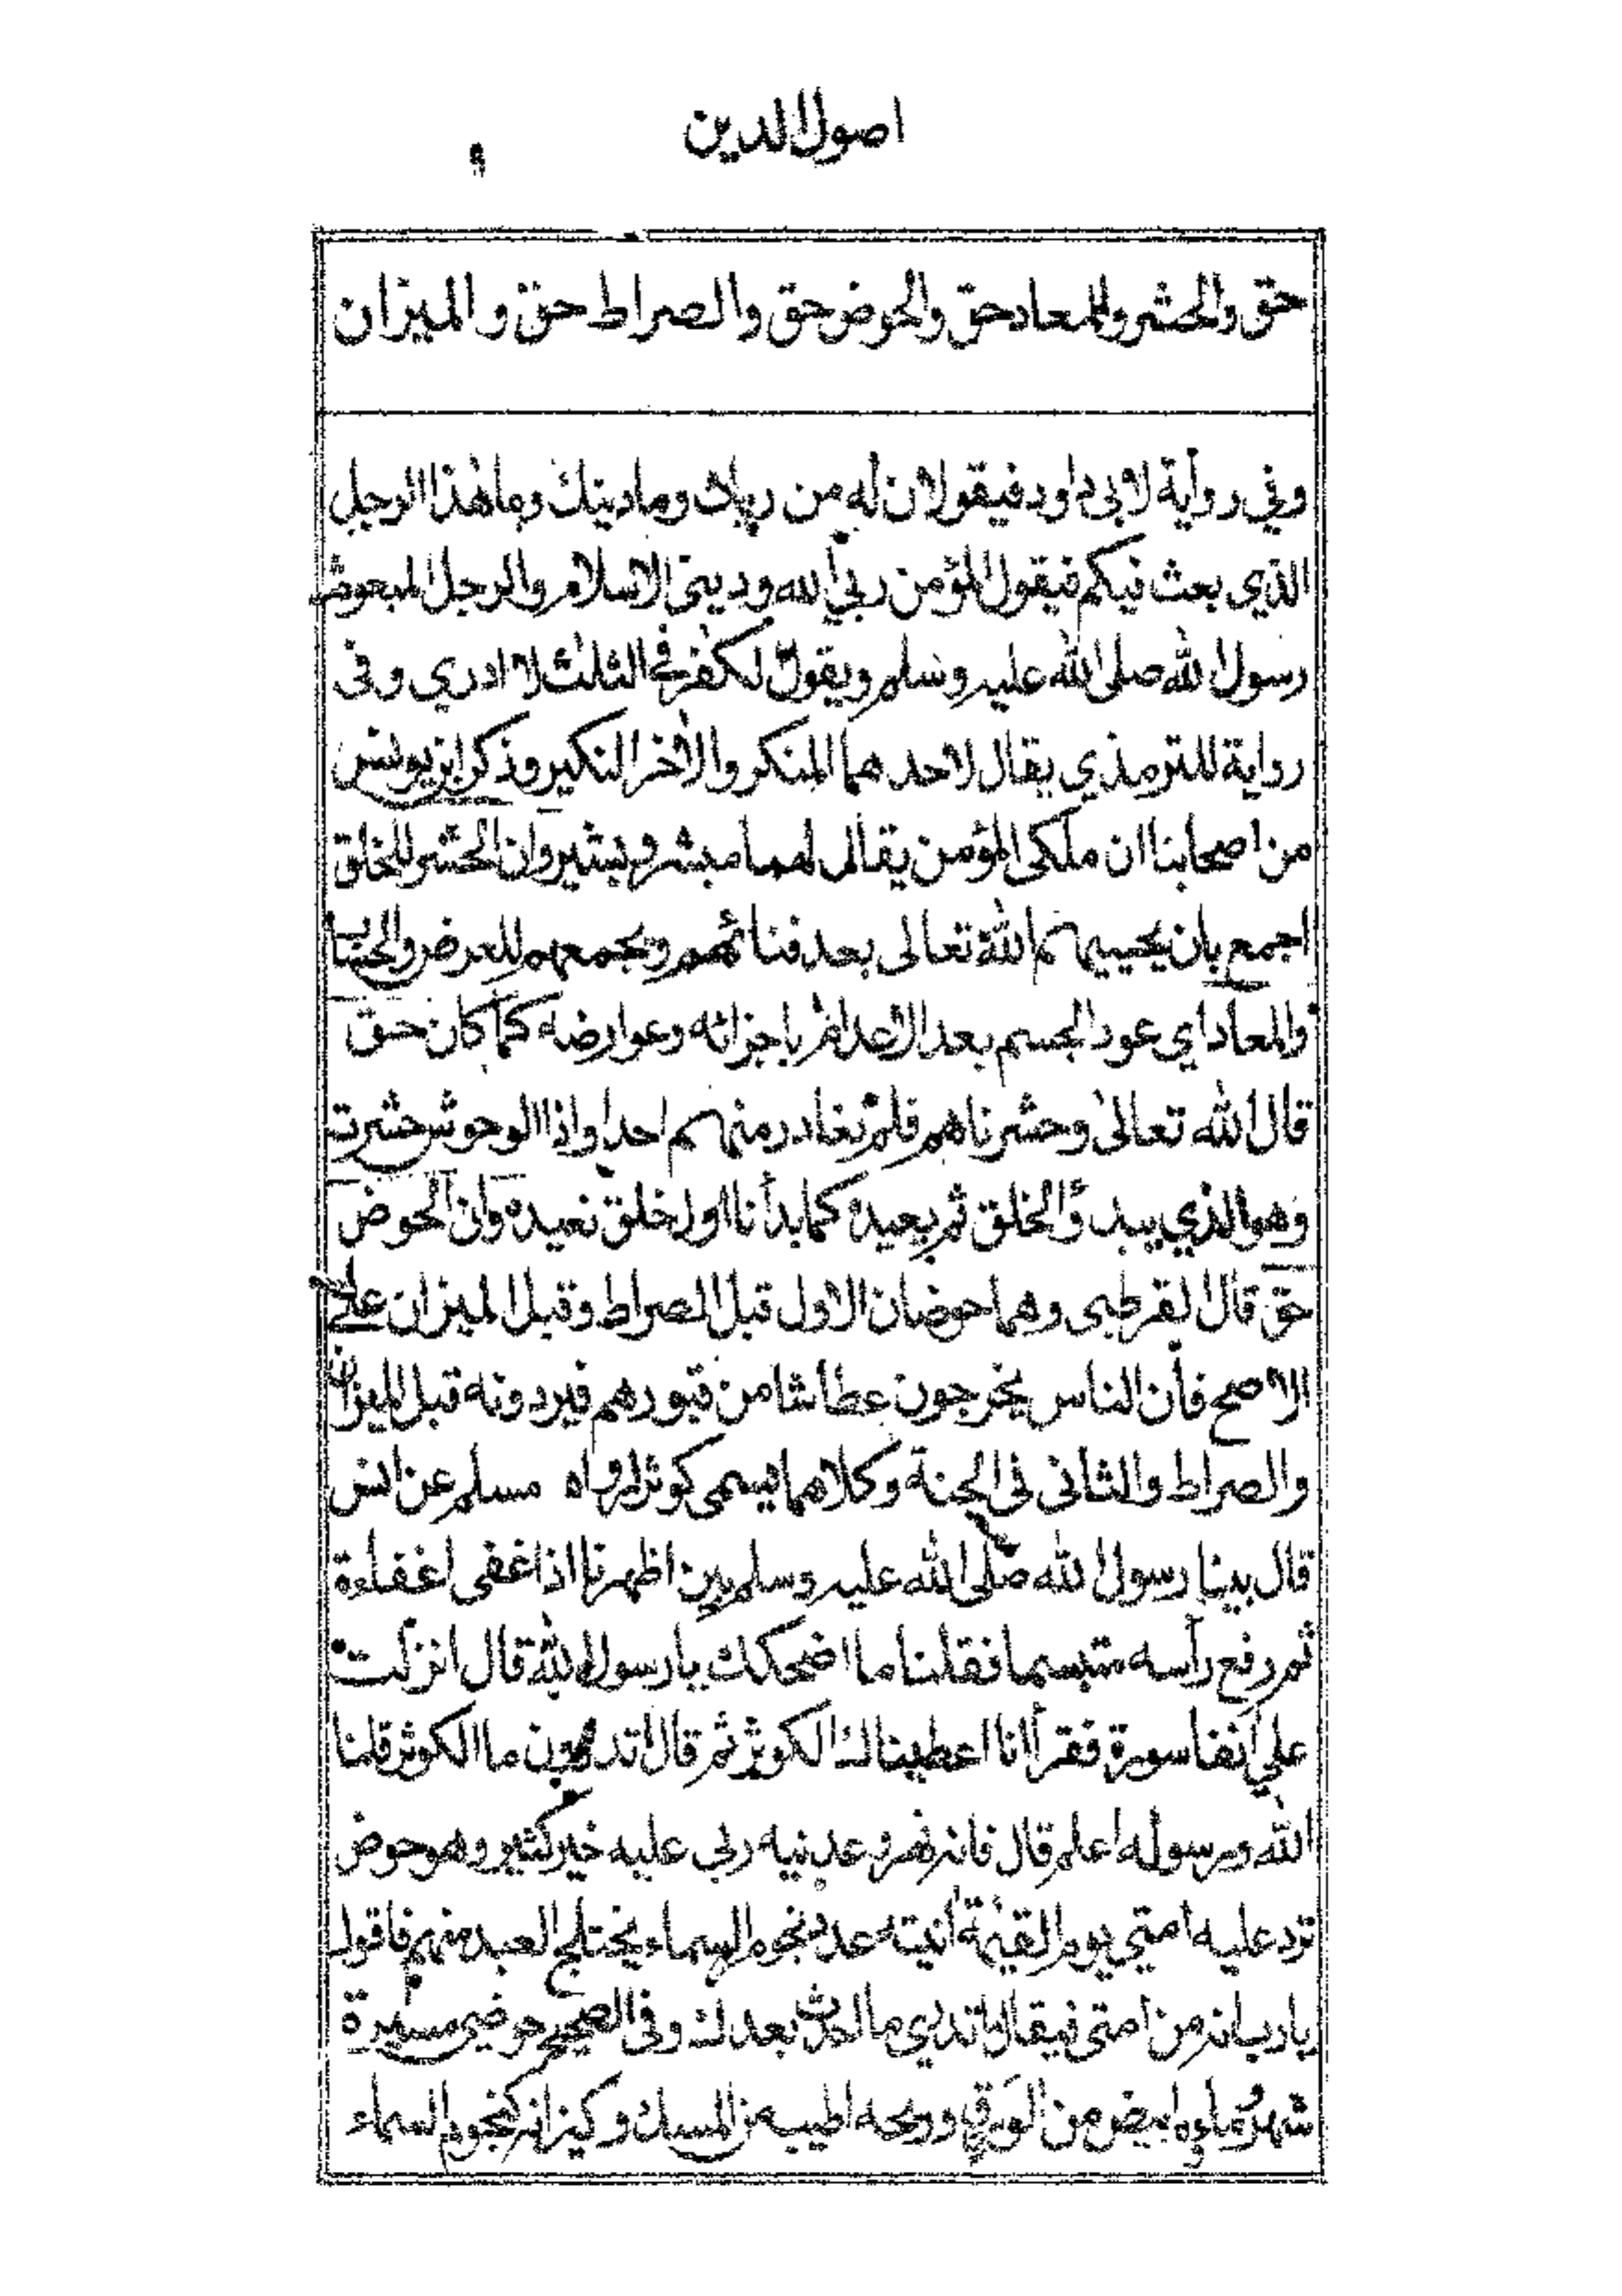 اصول الدين
٩
حق والحشر والمعاد حق والحوض حق والصراط حق والميزان
وفي رواية لابى داود فيقولان له من ربك وما دينك وما هذا الرجل
الذي بعث فيكم فيقول المؤمن ربي الله وديني الاسلام والرجل المبعوث
رسول الله صلى الله عليه وسلم ويقول الكفر في الثلث لا ادري وفى
رواية للترمذي يقال لاحدهما المنكر والاخر النكير وذكر ابن يونس
من اصحابنا ان ملكى المؤمن يقال لهما مبشر وبشير وان الحشر للخلق
اجمع بان يحييهم الله تعالى بعد فنائهم ويجمعهم للعرض والحساب
والمعاد اي عود الجسم بعد الاعدام باجزائه وعوارضه كما كان حق
قال الله تعالى وحشرناهم فلم نغادر منهم احدا واذا الوحوش حشرت
وهو الذي يبدؤ الخلق ثم يعيده كما بدأنا اول خلق نعيده وان الحوض
حق قال القرطبى وهما حوضان الاول قبل الصراط وقبل الميزان على
الاصح فأن الناس يخرجون عطاشا من قبورهم فيردونه قبل الميزان
والصراط والثانى فى الجنة وكلاهما يسمى كوثرا رواه مسلم عن انس
قال بينا رسول الله صلى الله عليه وسلم بين اظهرنا اذا غفى اغفاءة
ثم رفع رأسه متبسما فقلنا ما اضحكك يا رسول الله قال انزلت
علي آنفا سورة فقرأ انا اعطيناك الكوثر ثم قال اتدرون ما الكوثر قلنا
الله ورسوله اعلم قال فانه نهر وعدنيه ربي عليه خير كثير وهو حوض
ترد عليه امتي يوم القيمة آنيته عدد نجوم السماء يختلج العبد منهم فاقول
يا رب انه من امتى فيقال ما تدري ما احدث بعدك وفى الصحيح حوضي مسيرة
شهر وماءه ابيض من الورق وريحه اطيب من المسك وكيزانه كنجوم السماء